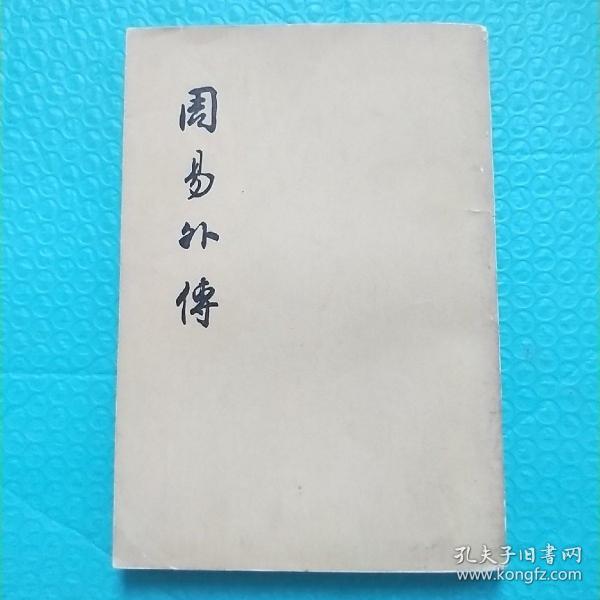 周易外傳
孔夫子旧書网
www.kongfz.com